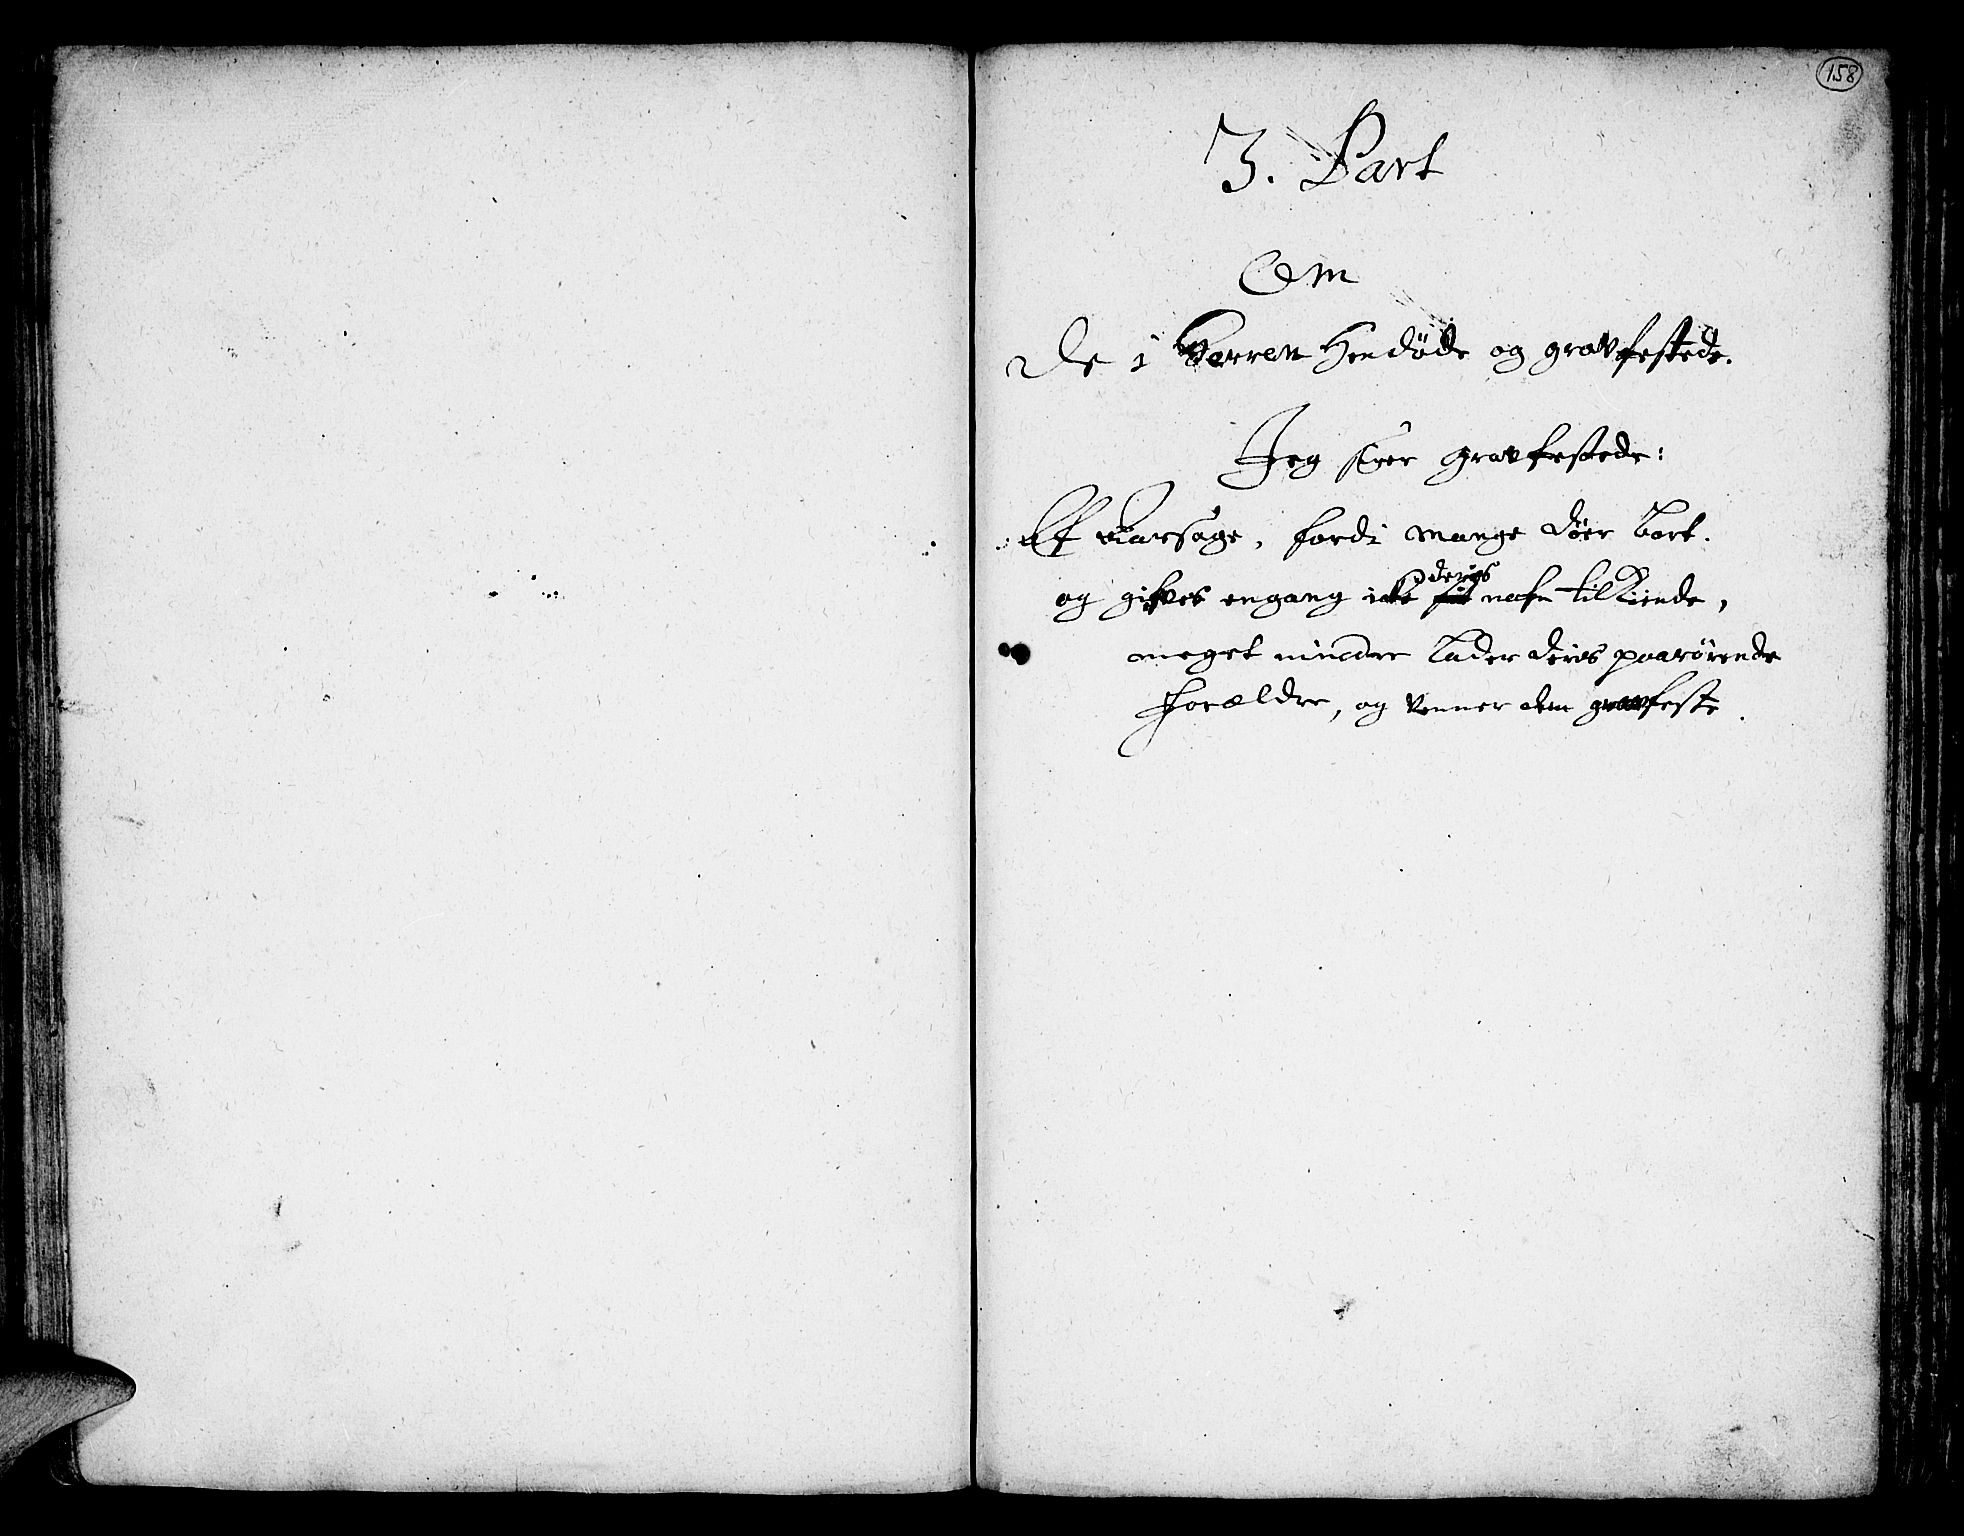 158
3. Part
Om
De i Herren Hendøde og gravfestede.
Jeg siger gravfestede:
Af Aarsage, fordi mange døer bort.
og gifves engang icke deris nafn tilkiende,
meget mindre lader deris paarørende
forældre, og venner dem gravfeste.